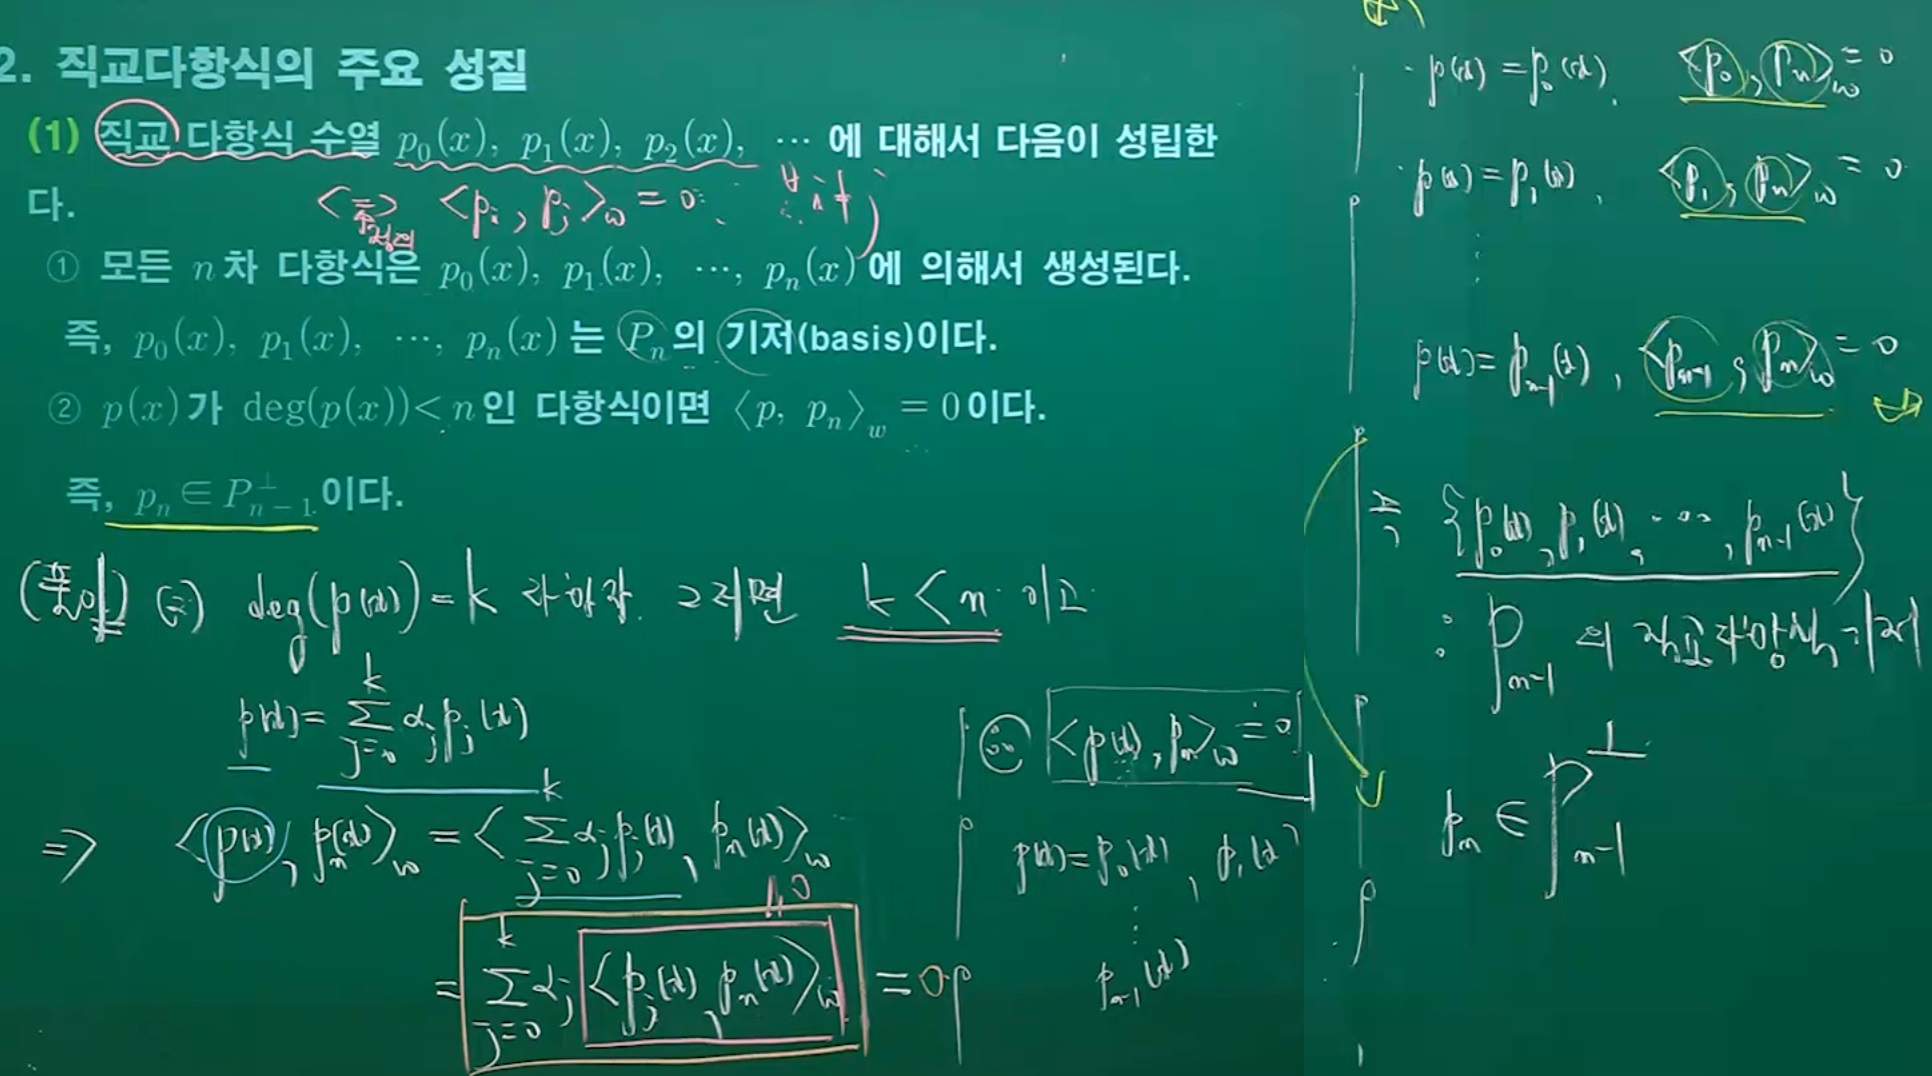 2. 직교다항식의 주요 성질
(1) 직교 다항식 수열 p₀(x), p₁(x), p₂(x), ⋯ 에 대해서 다음이 성립한
다.
<=> 정의 <pᵢ, pⱼ>_w = 0 ∀ i≠j
① 모든 n차 다항식은 p₀(x), p₁(x), ⋯, pₙ(x)에 의해서 생성된다.
즉, p₀(x), p₁(x), ⋯, pₙ(x)는 Pₙ의 기저(basis)이다.
② p(x)가 deg(p(x))<n인 다항식이면 ⟨p, pₙ⟩_w = 0이다.
즉, pₙ∈P⊥ₙ₋₁이다.
(풀이) (2) deg(p(x))=k 라 하자. 그러면 k<n 이고
p(x)=∑_{j=0}^{k} αⱼpⱼ(x)
=> <p(x), pₙ(x)>_w = <∑_{j=0}^{k} αⱼpⱼ(x), pₙ(x)>_w
= ∑_{j=0}^{k} αⱼ <pⱼ(x), pₙ(x)>_w = 0
0
<p(x), pₙ>_w = 0
p(x)=p₀(x), p₁(x)
⋮
pₙ₋₁(x)
· p(x)=p₀(x), <p₀, pₙ>_w = 0
· p(x)=p₁(x), <p₁, pₙ>_w = 0
⋮
p(x)=pₙ₋₁(x), <pₙ₋₁, pₙ>_w = 0
즉, {p₀(x), p₁(x), ⋯, pₙ₋₁(x)}
: Pₙ₋₁의 직교다항식 기저
pₙ ∈ P⊥ₙ₋₁